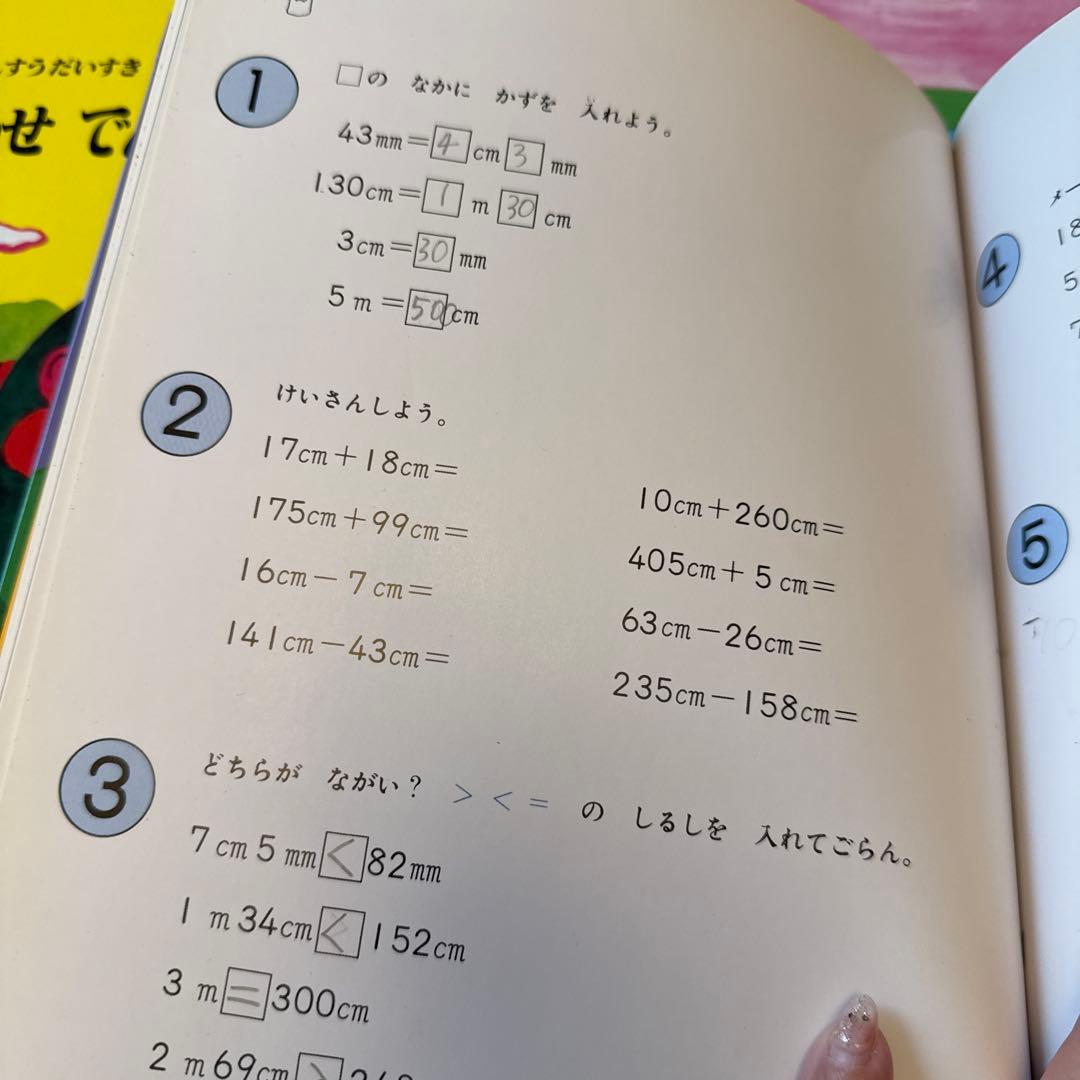 すうだいすき
せ で
1 □の なかに かずを 入れよう。
43mm=4cm 3mm
130cm=1m 30cm
3cm=30mm
5m=500cm
2 けいさんしよう。
17cm+18cm=
175cm+99cm=
16cm-7cm=
141cm-43cm=
10cm+260cm=
405cm+5cm=
63cm-26cm=
235cm-158cm=
3 どちらが ながい? > < = の しるしを 入れてごらん。
7cm5mm<82mm
1m34cm<152cm
3m=300cm
2m69cm>
4
18
5
5